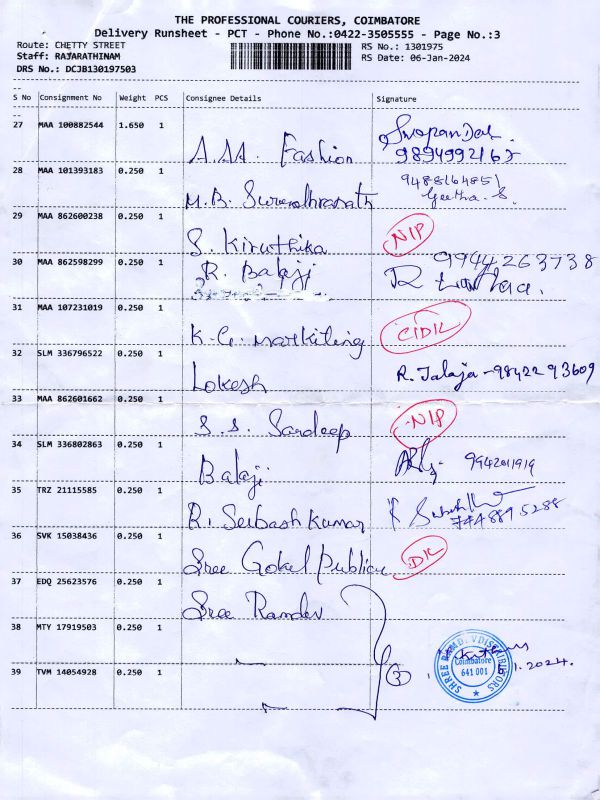 THE PROFESSIONAL COURIERS, COIMBATORE
Delivery Runsheet - PCT - Phone No.:0422-3505555 - Page No.:3
Route: CHETTY STREET RS No.: 1301975
Staff: RAJARATHINAM RS Date: 06-Jan-2024
DRS No.: DCJB130197503
S No Consignment No Weight PCS Consignee Details Signature
27 MAA 100882544 1.650 1 A.M. Fashion
9894992165
28 MAA 101393183 0.250 1 M.B. 9488164851
Geetha. S
29 MAA 862600238 0.250 1 S. Kiruthika NIP
30 MAA 862598299 0.250 1 R. Balaji 9944263738
31 MAA 107231019 0.250 1 K.G. Markiting C/DIL
32 SLM 336796522 0.250 1 Lokesh R. Jalaja - 9842293609
33 MAA 862601662 0.250 1 S.S. Sandeep NIP
34 SLM 336802863 0.250 1 Balaji 9942011919
35 TRZ 21115585 0.250 1 R. Subash Kumar
7448895288
36 SVK 15038436 0.250 1 Sree Gokul Publice DIL
37 EDQ 25623576 0.250 1 Sree Ramdev
38 MTY 17919503 0.250 1
39 TVM 14054928 0.250 1 3
Coimbatore
641 001
.1.2024.